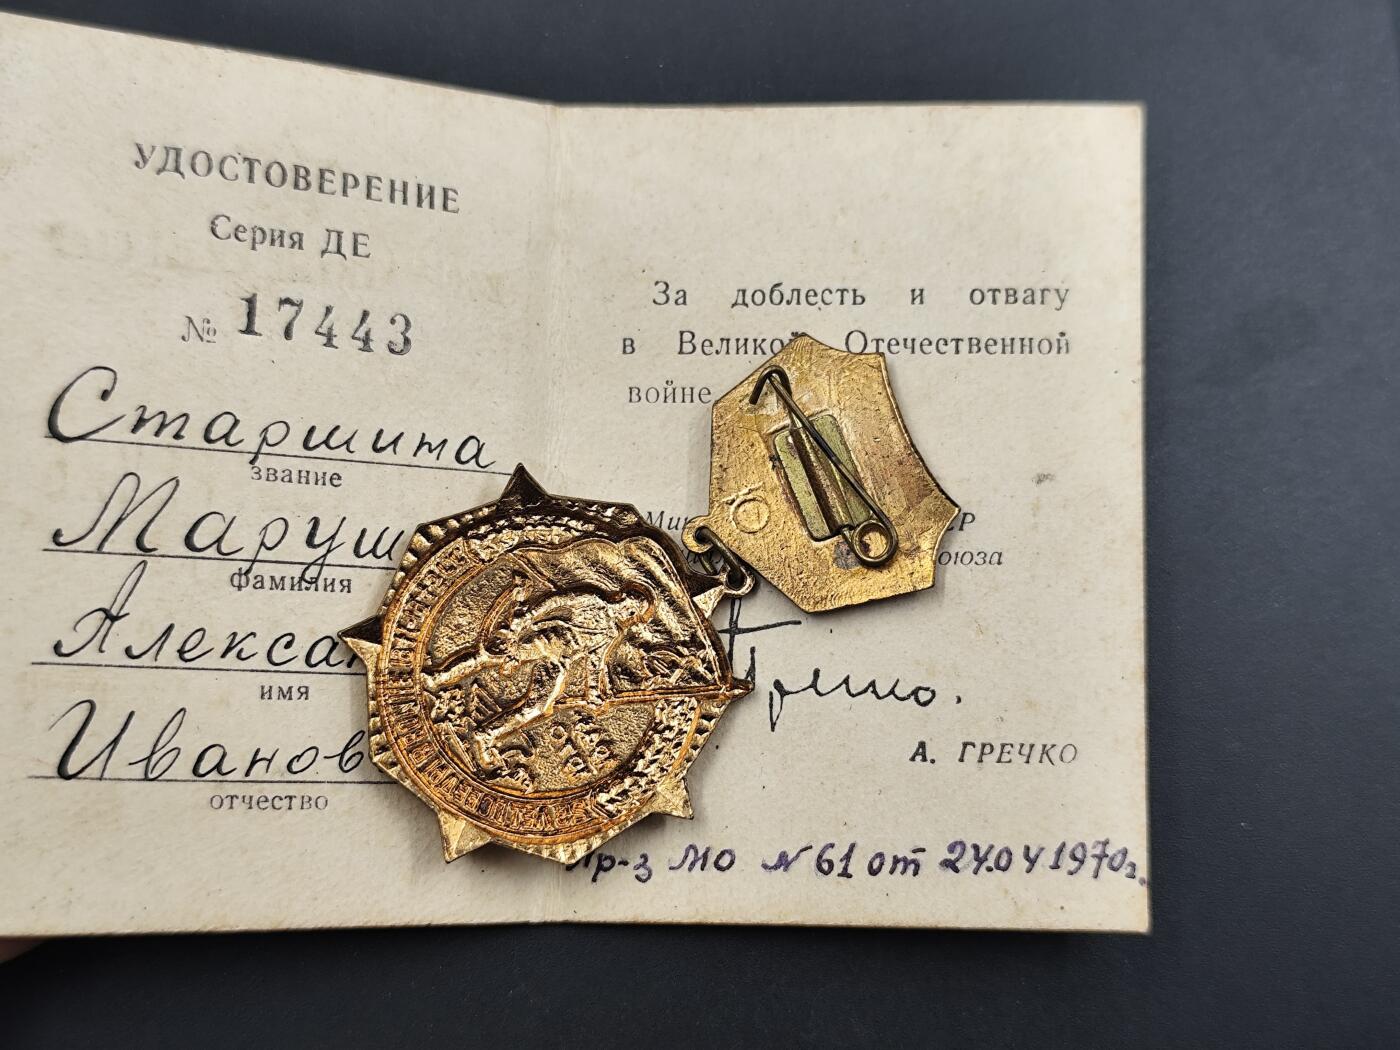 УДОСТОВЕРЕНИЕ
Серия ДЕ
№ 17443
Старшина
звание
Маруш
фамилия
Алексан
имя
Иванов
отчество
За доблесть и отвагу
в Великой Отечественной
войне
Ми СР
оюза
А. ГРЕЧКО
Пр-з МО № 61 от 24.04 1970г.